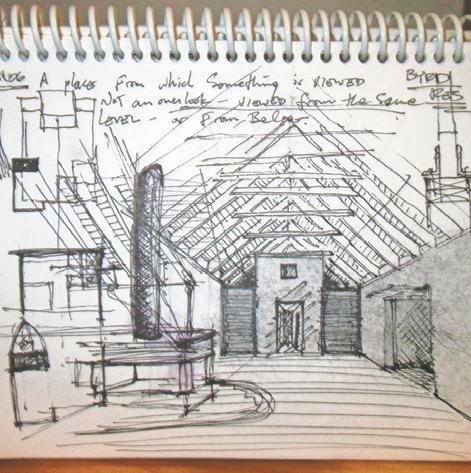 A place From which Something is VIEWED
Not an overlook - VIEWED from the Same
LEVEL - or From Below.